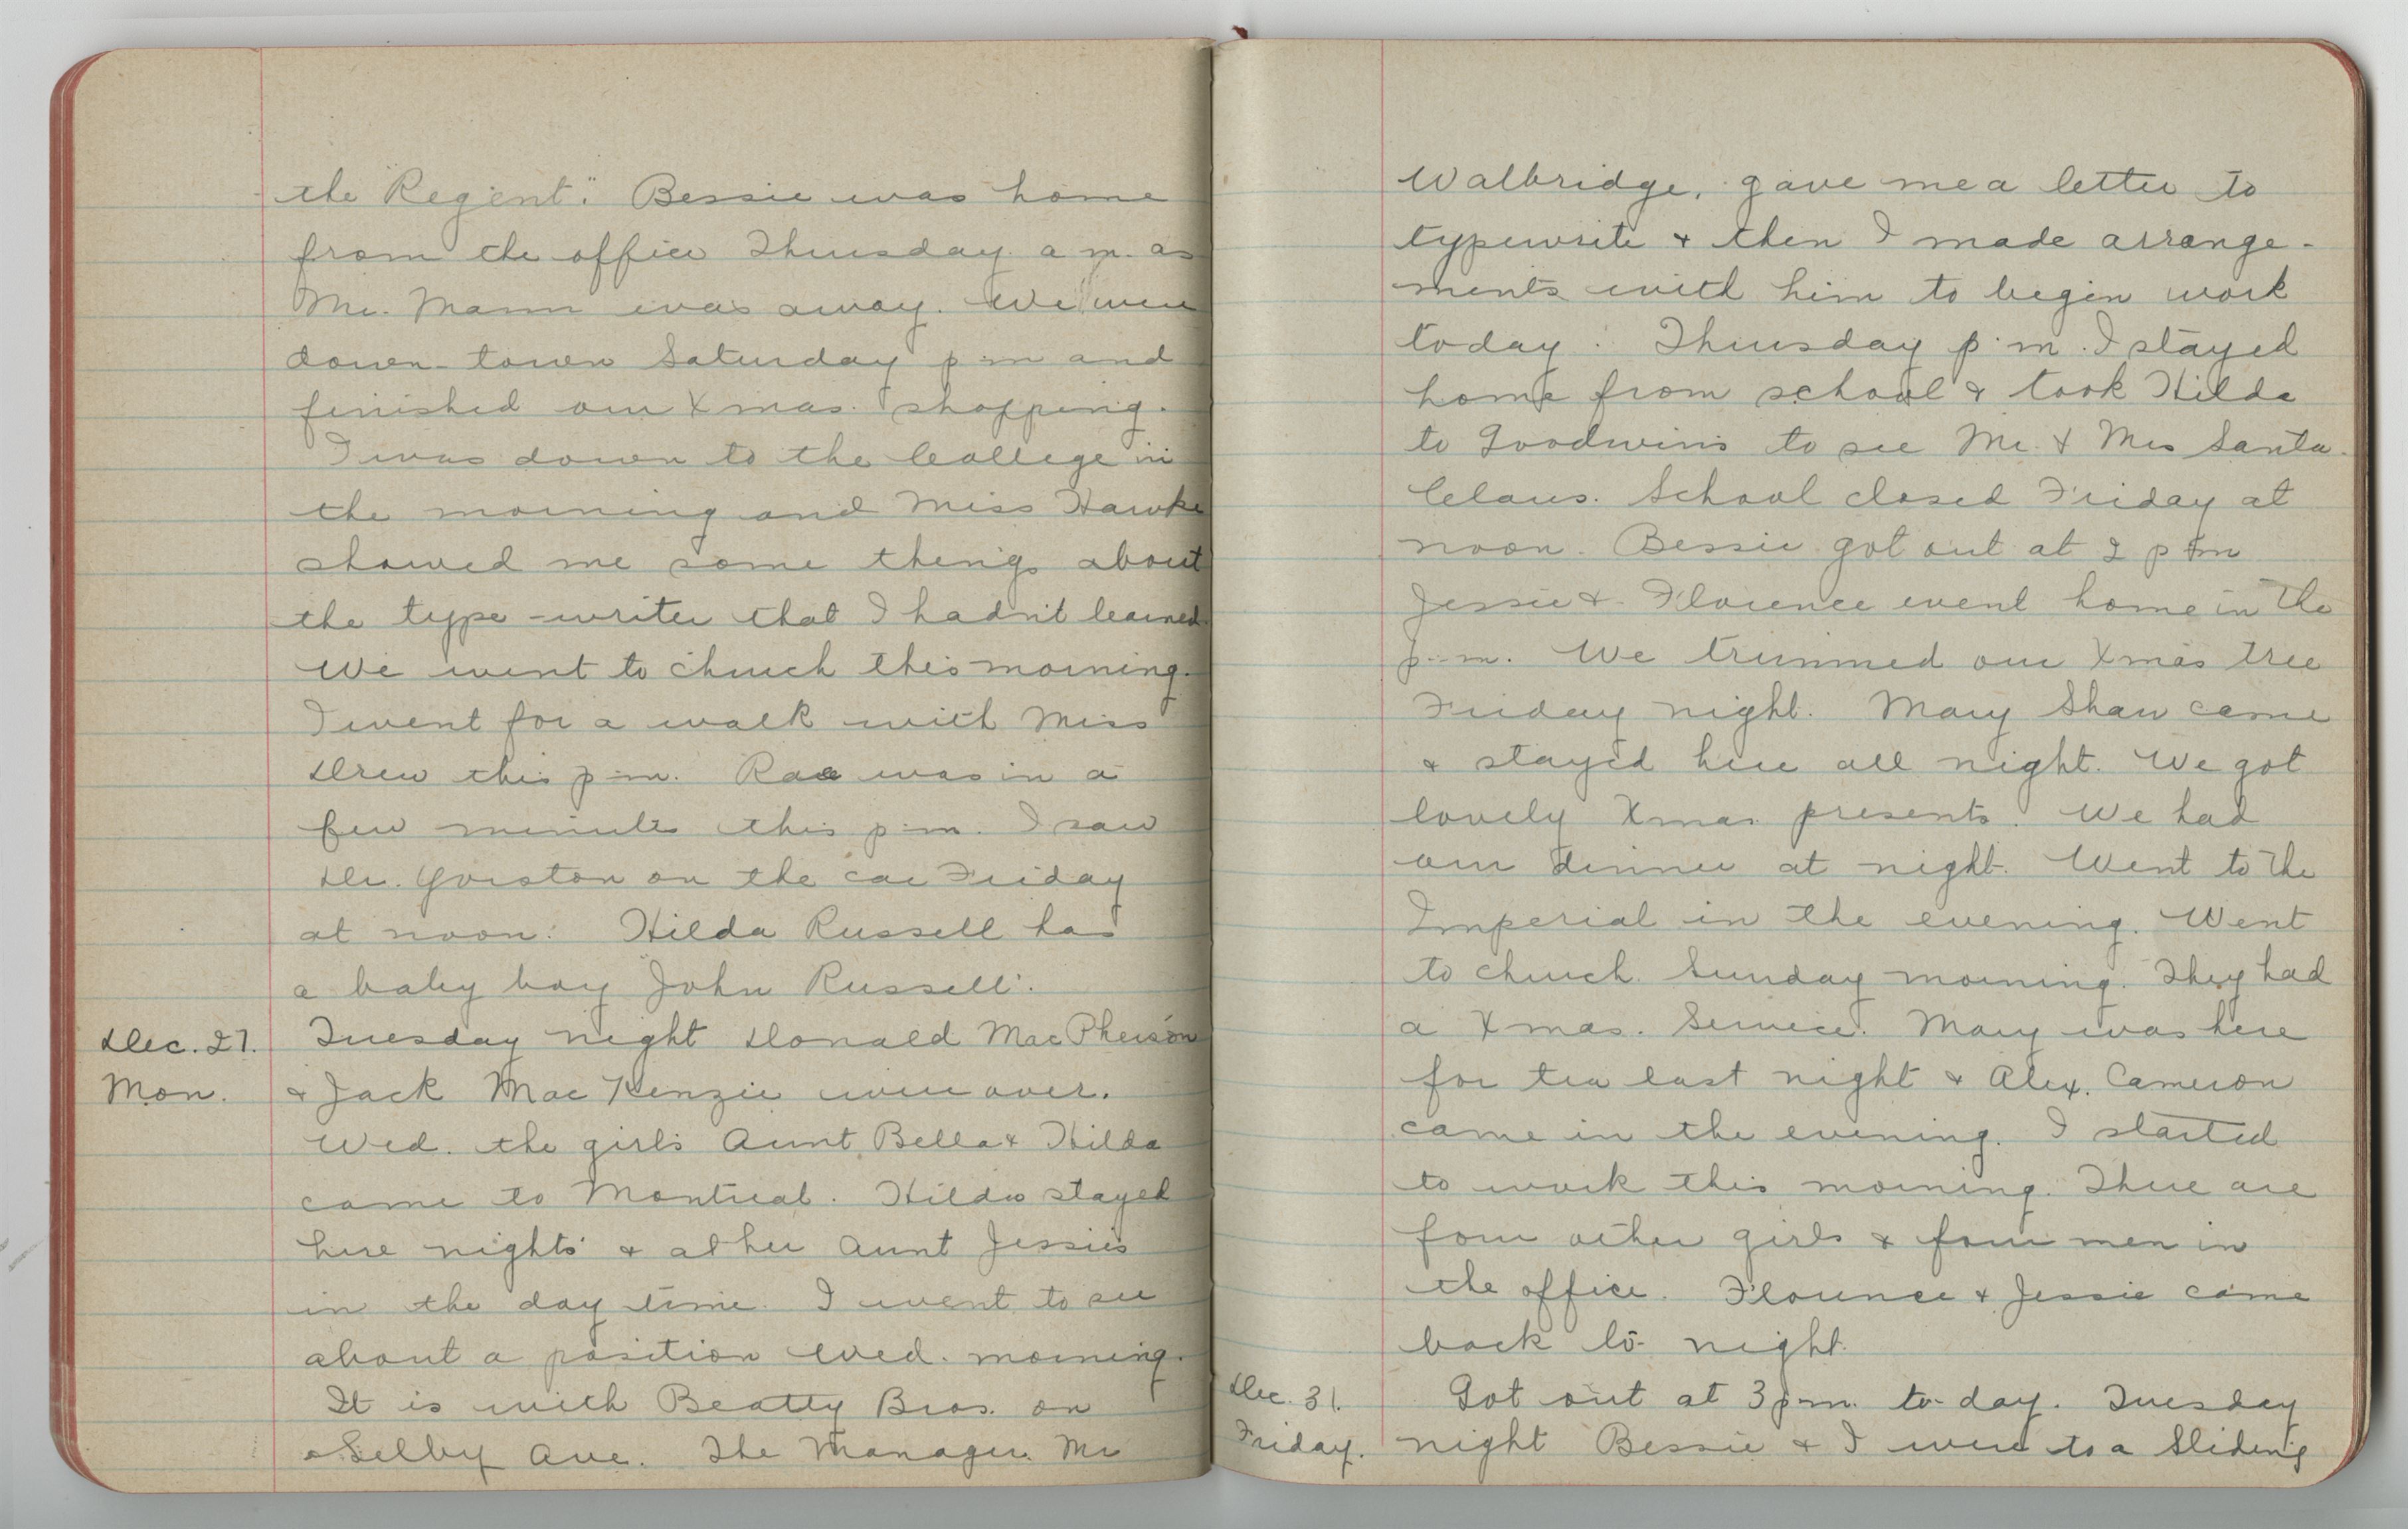 the "Regent." Bessie was home
from the office Thursday a.m. as
Mr. Mann was away. We were
down-town Saturday p.m and
finished our Xmas. shopping.
I was down to the College in
the morning and Miss Hawke
showed me some things about
the type-writer that I hadn't learned.
We went to church this morning.
I went for a walk with Miss
Drew this p.m. Rae was in a
few minutes this p.m. I saw
Dr. Gorston on the car Friday
at noon. Hilda Russell has
a baby boy "John Russell".
Dec. 27. Tuesday night Donald MacPherson
Mon. & Jack MacKenzie were over.
Wed. the girls Aunt Bella & Hilda
came to Montreal. Hilda stayed
here nights & at her Aunt Jessie's
in the day time. I went to see
about a position Wed. morning.
It is with Beatty Bros. on
Selby Ave. The Manager Mr
Walbridge, gave me a letter to
typewrite & then I made arrange-
ments with him to begin work
today. Thursday p.m. I stayed
home from school & took Hilda
to Goodwin's to see Mr. & Mrs Santa
Claus. School closed Friday at
noon. Bessie got out at 2 p.m
Jessie & Florence went home in the
p.m. We trimmed our Xmas tree
Friday night. Mary Shaw came
& stayed here all night. We got
lovely Xmas presents. We had
our dinner at night. Went to the
Imperial in the evening. Went
to church Sunday morning. They had
a Xmas. Service. Mary was here
for tea last night & Alex. Cameron
came in the evening. I started
to work this morning. There are
four other girls & four men in
the office. Florence & Jessie came
back to-night.
Dec. 31. Got out at 3 p.m. to-day. Tuesday
Friday. night Bessie & I were to a Sliding